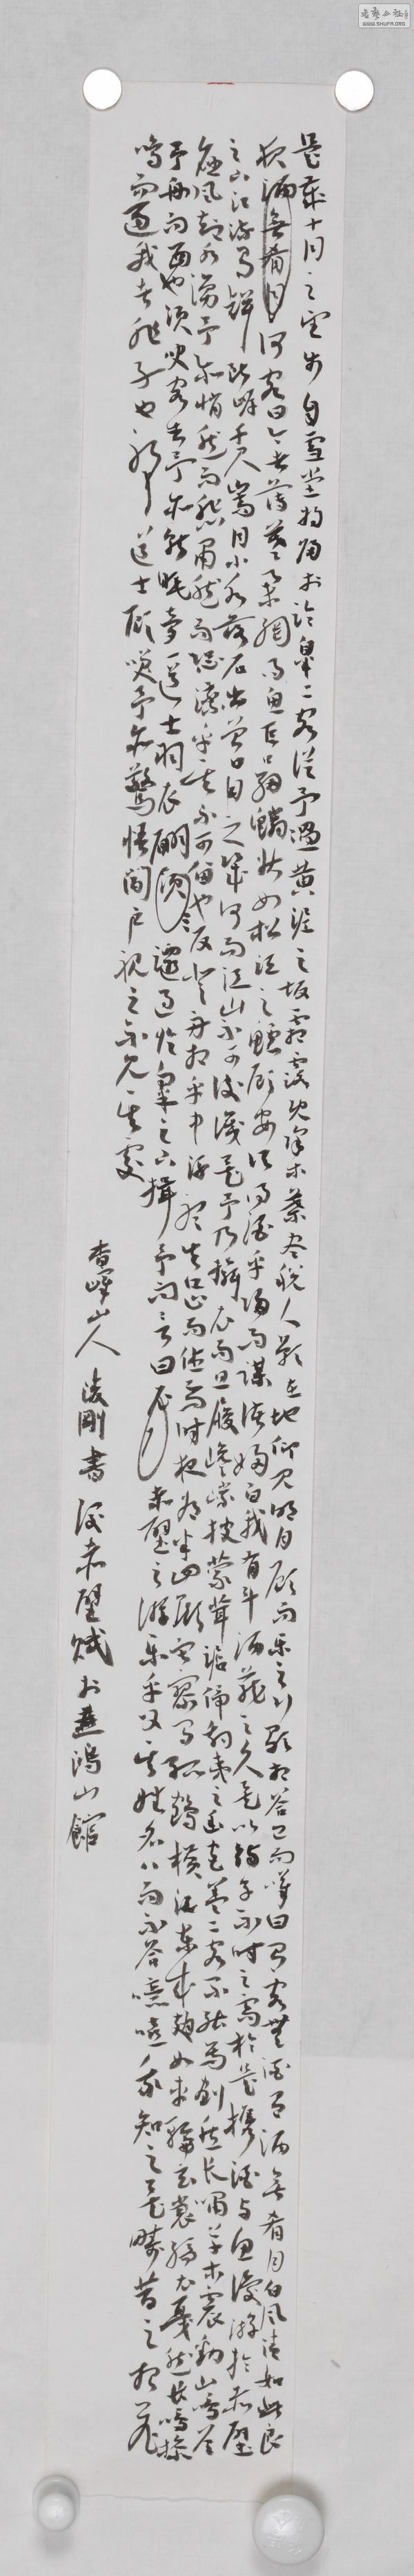 是歲十月之望步自雪堂將歸於臨皋二客從予過黃泥之坂霜露既降木葉盡脫人影在地仰見明月顧而樂之行歌相答已而嘆曰有客無酒有酒無肴月白風清如此良
夜酒無肴月何客曰今者薄暮舉網得魚巨口細鱗狀如松江之鱸顧安所得酒乎歸而謀諸婦曰我有斗酒藏之久矣以待子不時之需於是攜酒與魚復遊於赤壁
之下江流有聲斷岸千尺山高月小水落石出曾日月之幾何而江山不可復識矣予乃攝衣而上履巉巖披蒙茸踞俯馮夷之幽宮蓋二客不能焉劃然長嘯草木震動山鳴谷
應風起水湧予亦悄然而悲肅然而恐凜乎其不可留也反登舟放乎中流聽其所止而休焉時夜將半四顧寂寥有孤鶴橫江東來翅如車輪玄裳縞衣戛然長鳴掠
予舟而西也須臾客去予亦就睡夢道士羽衣翩躚過臨皋之下揖予而言曰赤壁之遊樂乎問其姓名俛而不答噫嘻我知之矣疇昔之夜飛
鳴而過我者非子也耶道士顧笑予亦驚悟開戶視之不見其處
山人淩剛書後赤壁賦於鴻山館
書藝公社
WWW.SHUFA.ORG